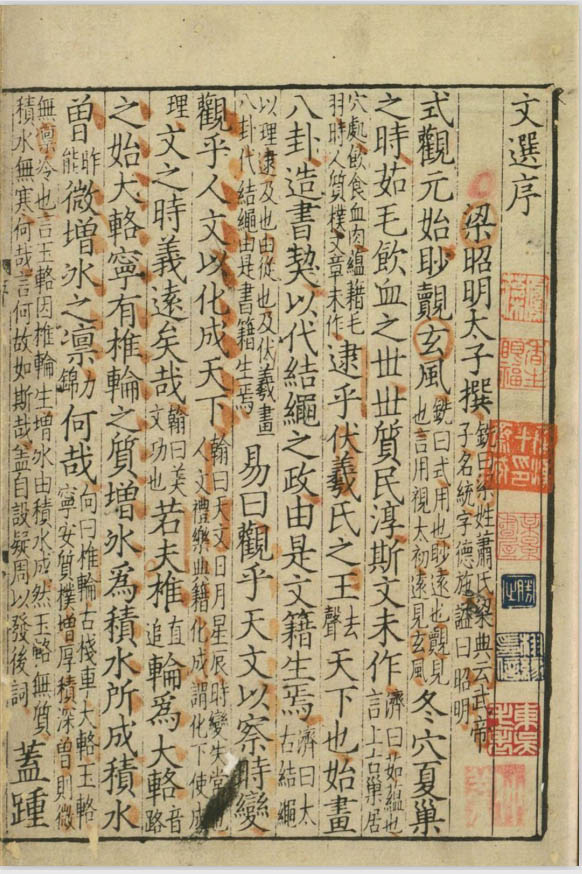 文選序
梁昭明太子撰銑曰梁姓蕭氏梁典云武帝子名統字德施謚曰昭明
式觀元始眇覿玄風銑曰式用也眇遠也覿見也言用視太初遠見玄風冬穴夏巢
之時茹毛飲血之世世質民淳斯文未作濟曰茹緼也言上古巢居
穴處飲食血肉緼藉毛羽時人質樸文章未作逮乎伏羲氏之王去聲天下也始畫
八卦造書契以代結繩之政由是文籍生焉濟曰太古結繩
以理逮及也由從也及伏羲畫八卦代結繩由是書籍生焉易曰觀乎天文以察時變
觀乎人文以化成天下翰曰天文日月星辰時變失常也人文禮樂典籍化成謂化下使成
理文之時義遠矣哉翰曰美文功也若夫椎直追輪為大輅音路
之始大輅寧有椎輪之質增冰為積水所成積水
曾昨能微增冰之凜力錦何哉向曰椎輪古棧車大輅玉輅寧安質樸增厚積深曾則微
無凜冷也言玉輅因椎輪生增冰由積水成然玉輅無質積水無寒何哉言何故如斯哉蓋自設疑周以發後詞蓋踵